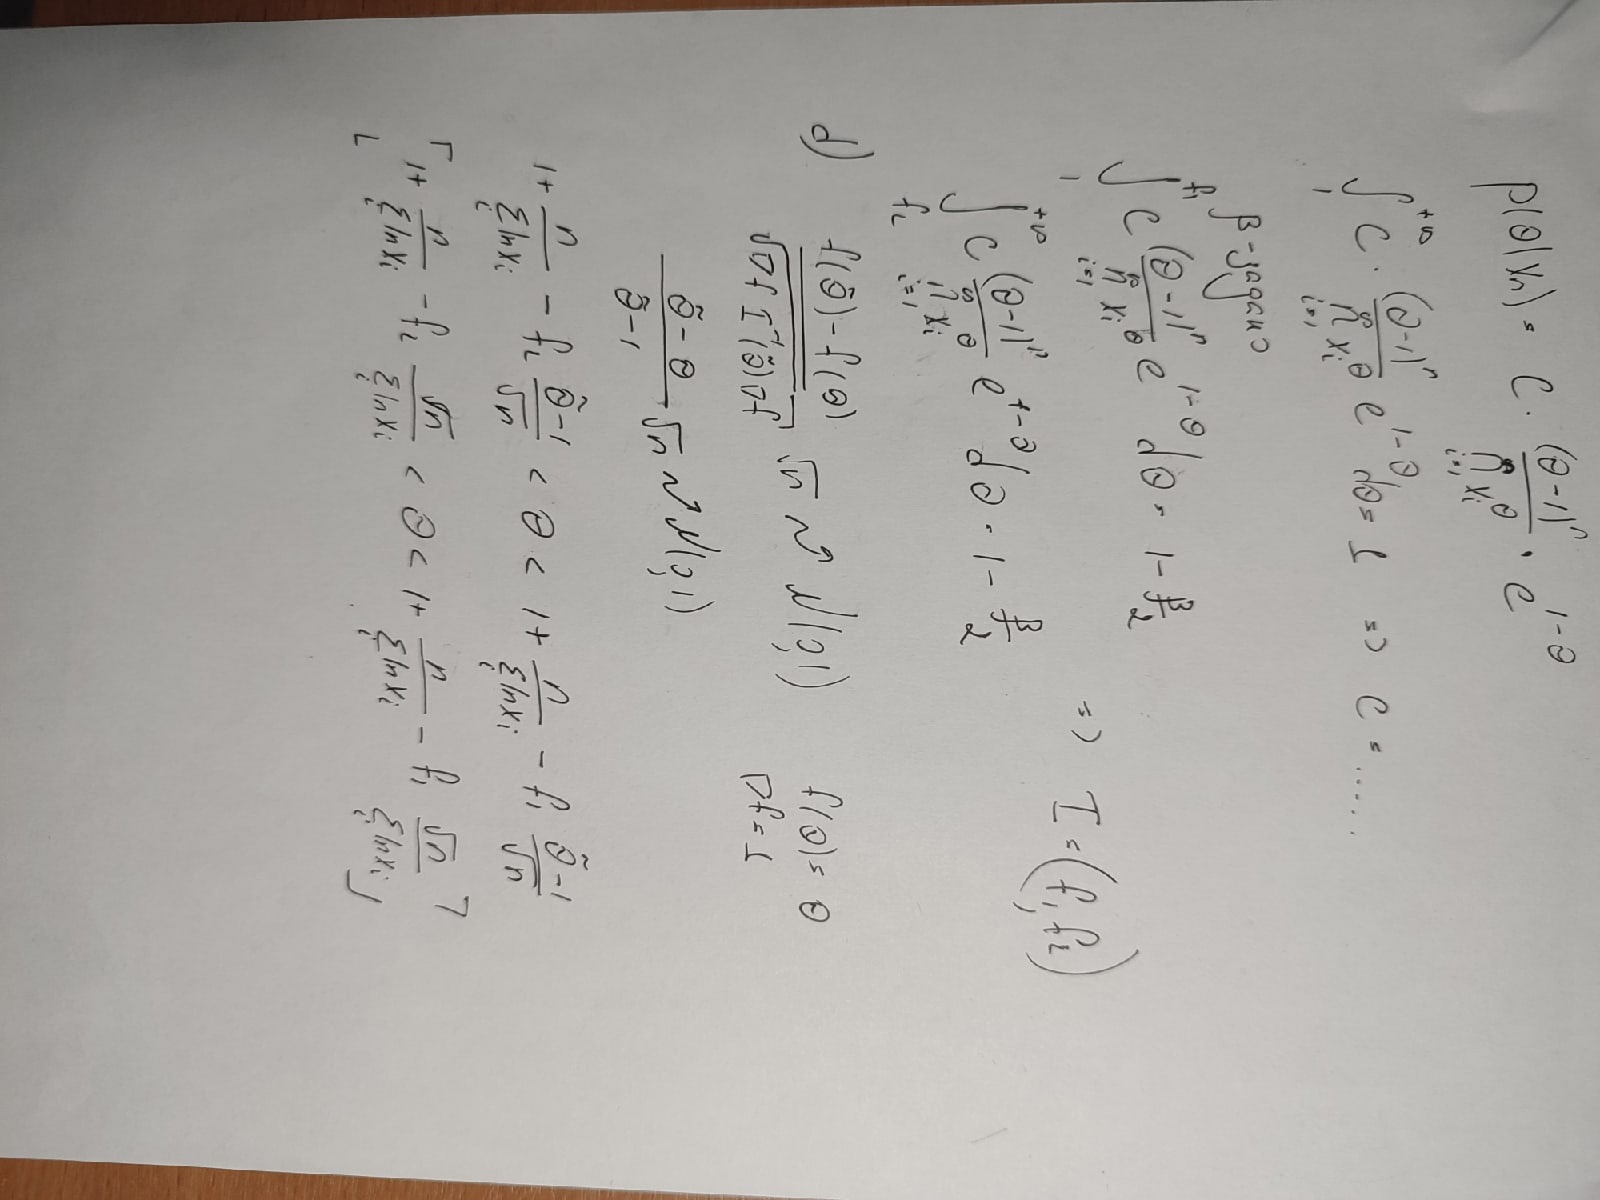 p(θ|x_n) = C · (θ-1)^n / ∏_{i=1}^{n} x_i^θ · e^{1-θ}
∫_1^{+∞} C · (θ-1)^n / ∏_{i=1}^{n} x_i^θ e^{1-θ} dθ = 1 => C = .....
β-задано
∫_1^{f_1} C (θ-1)^n / ∏_{i=1}^{n} x_i^θ e^{1-θ} dθ = 1 - β/2
=> I = (f_1, f_2)
∫_{f_2}^{+∞} C (θ-1)^n / ∏_{i=1}^{n} x_i^θ e^{1-θ} dθ = 1 - β/2
d) (f(θ̃) - f(θ)) / √(∇f I^{-1}(θ̃) ∇f^T) √n ~ N(0,1) f(θ) = θ
∇f = 1
(θ̃ - θ) / (θ̃ - 1) √n ~ N(0,1)
1 + n / Σ_i ln x_i - f_2 (θ̃-1)/√n < θ < 1 + n / Σ_i ln x_i - f_1 (θ̃-1)/√n
[1 + n / Σ_i ln x_i - f_2 √n / Σ_i ln x_i < θ < 1 + n / Σ_i ln x_i - f_1 √n / Σ_i ln x_i]